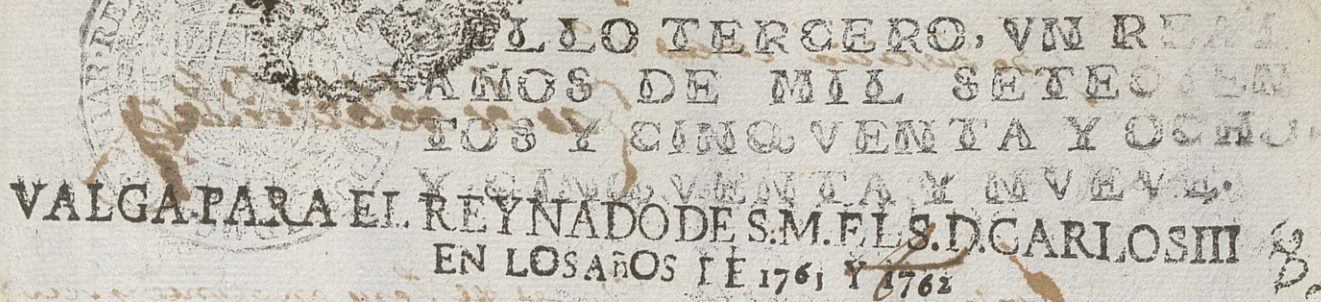 SELLO TERCERO, VN REAL
AÑOS DE MIL SETECIEN
TOS Y CINQVENTA Y OCHO,
Y CINQVENTA Y NVEVE.
VALGA PARA EL REYNADO DE S.M. EL S.D.CARLOS III
EN LOS AñOS DE 1761 Y 1762